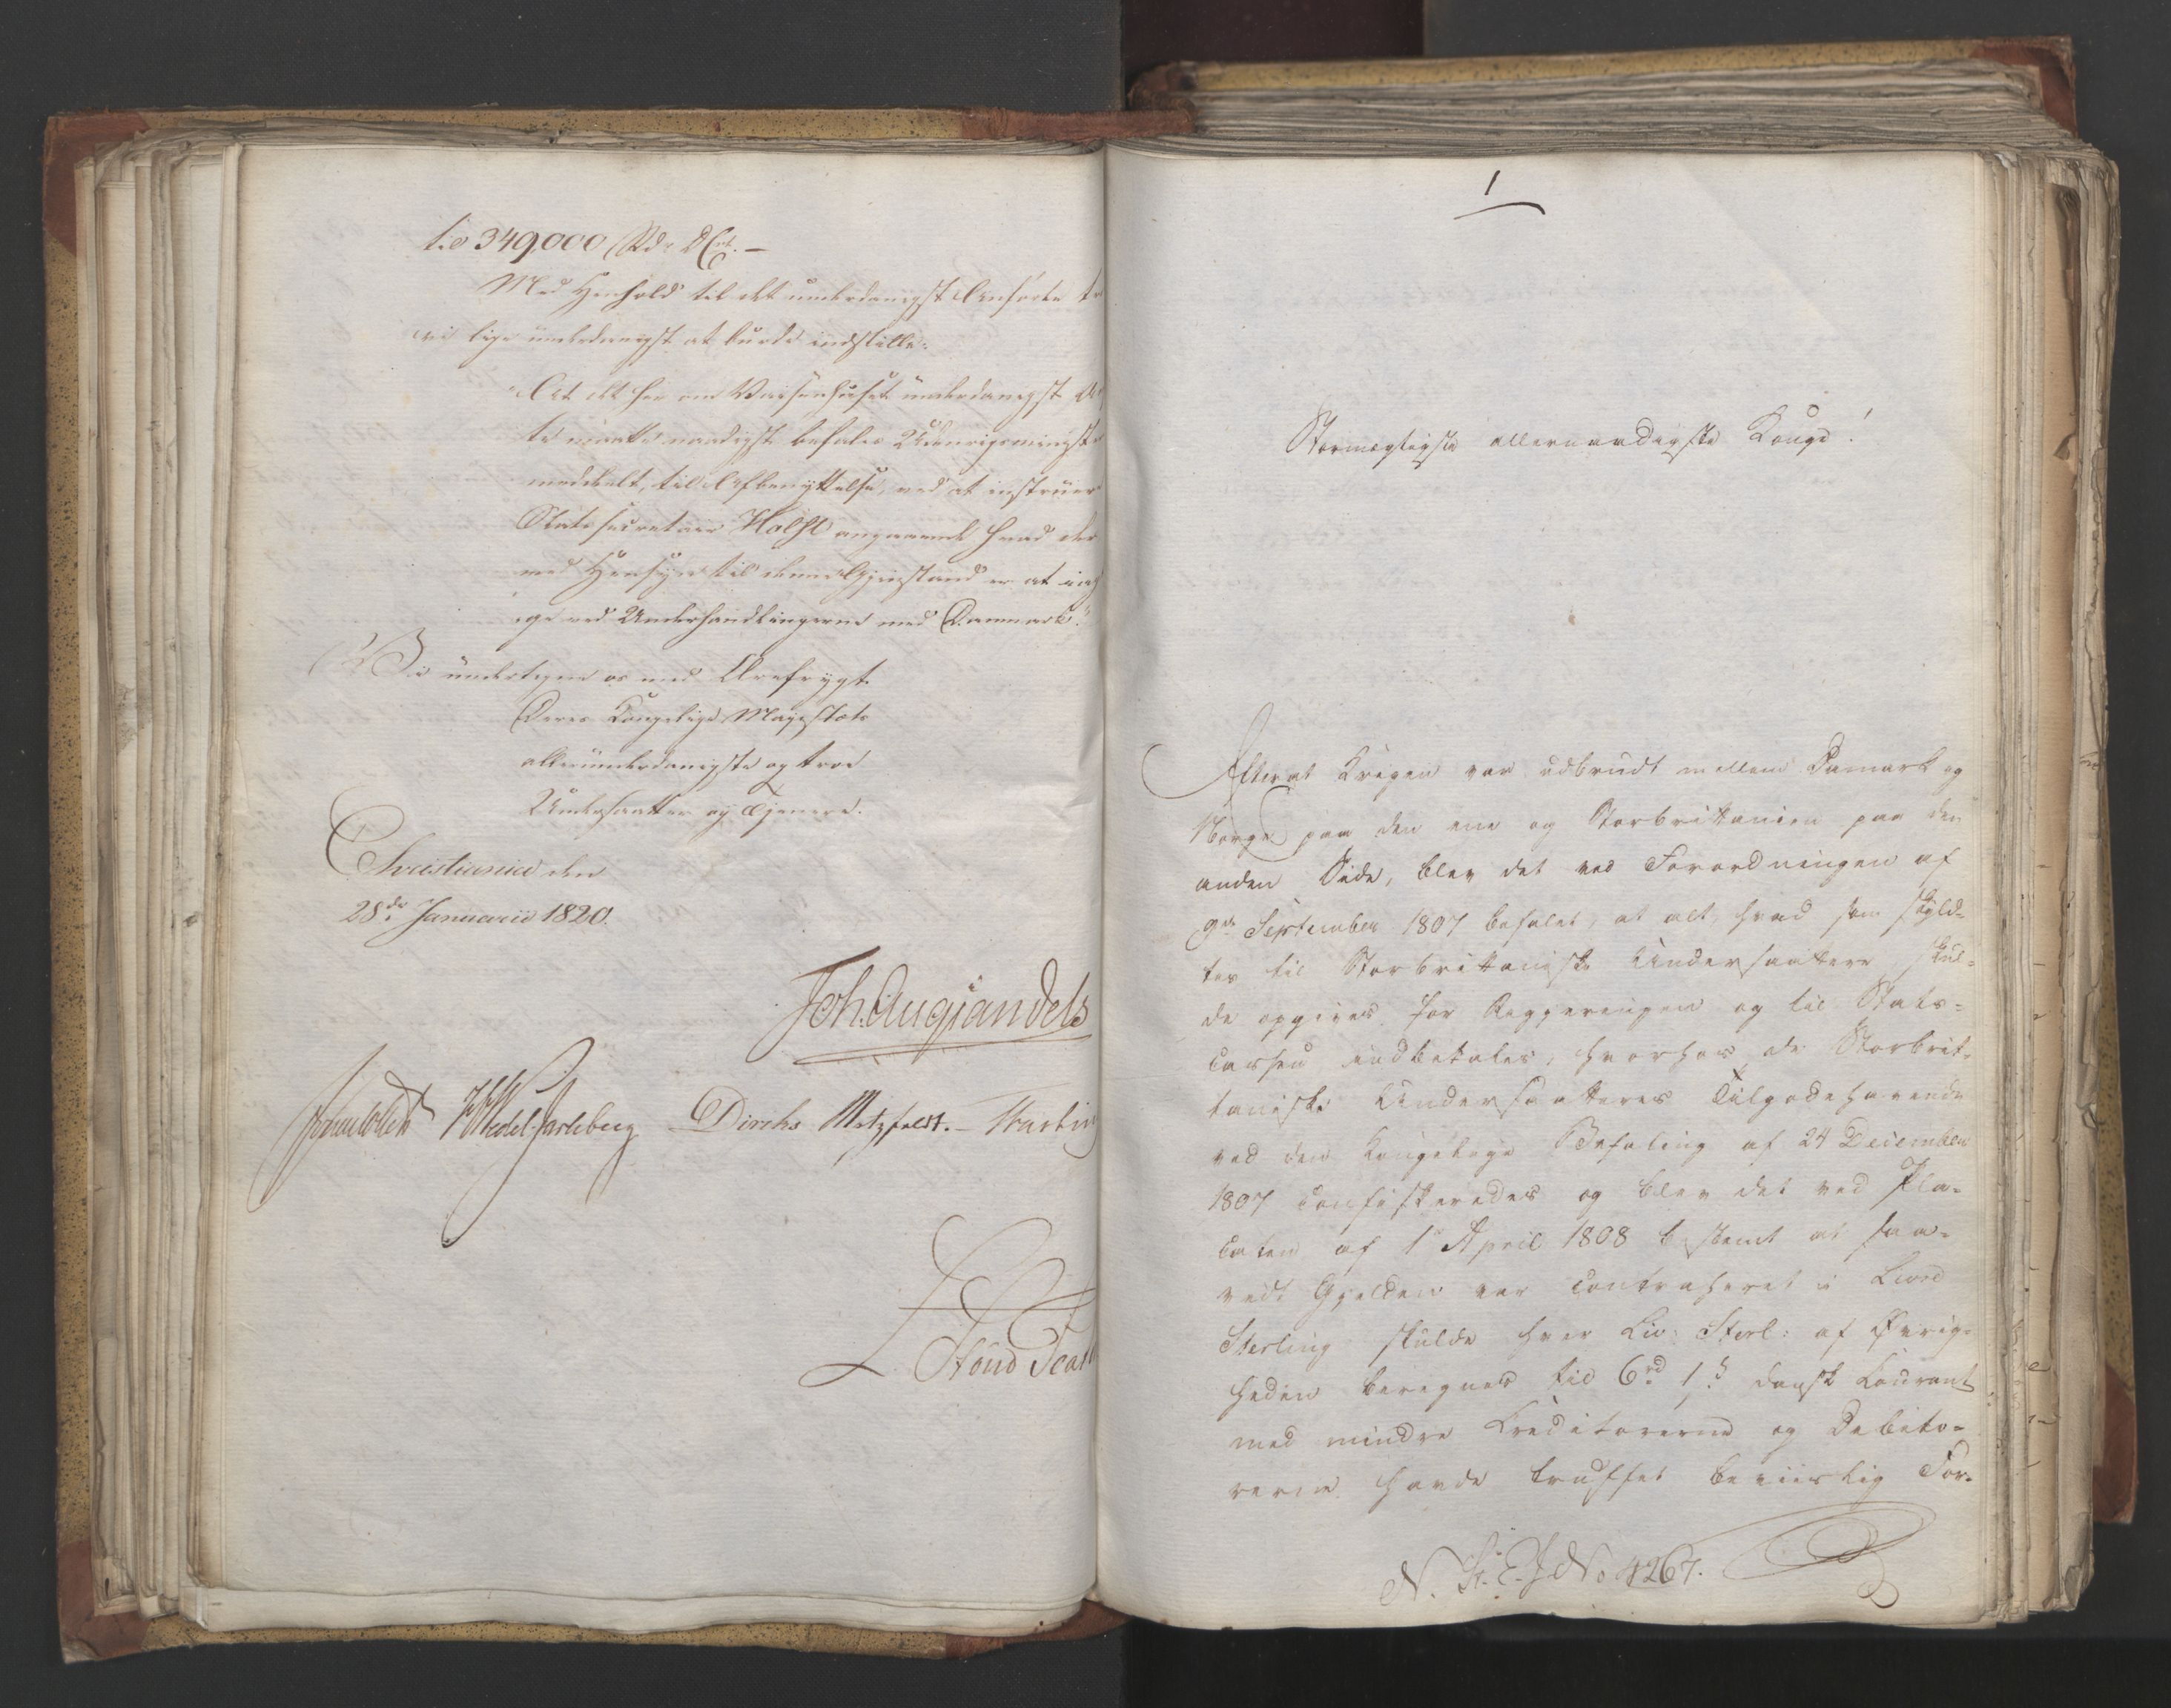 til 349,000 Rd. D. Crt. —
Med Henhold til det underdanigst Anførte
vi lige underdanigst at burde indstille:
"At det her om Vaisenhuset underdanigst
te maatte naadigst befales Udenrigsminist
meddeelt, til Afbenyttelse, ved at instruer
Statssecretair Holst angaaende hvad der
med Hensyn til denne Gjenstand er at
ge ved Underhandlingerne med Danmark."
Vi undertegne os med Ærefrygt
Deres Kongelige Majestæts
allerunderdanigste og troe
Undersaatter og Tjenere.
Christiania den
28de Januarii 1820.
Joh: Aug: Sandels
JHWedel-Jarlsberg Diriks Motzfeldt.
1
Stormægtigste allernaadigste Konge!
Efterat Krigen var udbrudt mellem Danmark og
Norge paa den ene og Storbrittanien paa den
anden Side, blev det ved Forordningen af
9de September 1807 befalet, at alt, hvad som skyld-
tes til Storbrittaniske Undersaattere skul-
de opgives for Regjeringen og til Stats-
Cassen indbetales, hvorhos de Storbrit-
taniske Undersaatteres Tilgodehavende
ved den Kongelige Befaling af 24 December
1807 confiskeredes og blev det ved Pla-
caten af 1 April 1808 bestemt at saa-
vidt Gjelden var contraheret i Livre
Sterling skulde hver Liv: Sterl: af Øvrig-
heden beregnes til 6rd 1s dansk Courant
med mindre Creditorerne og Debito-
rerne havde truffet beviislig For-
N. St. E. J No 4267.